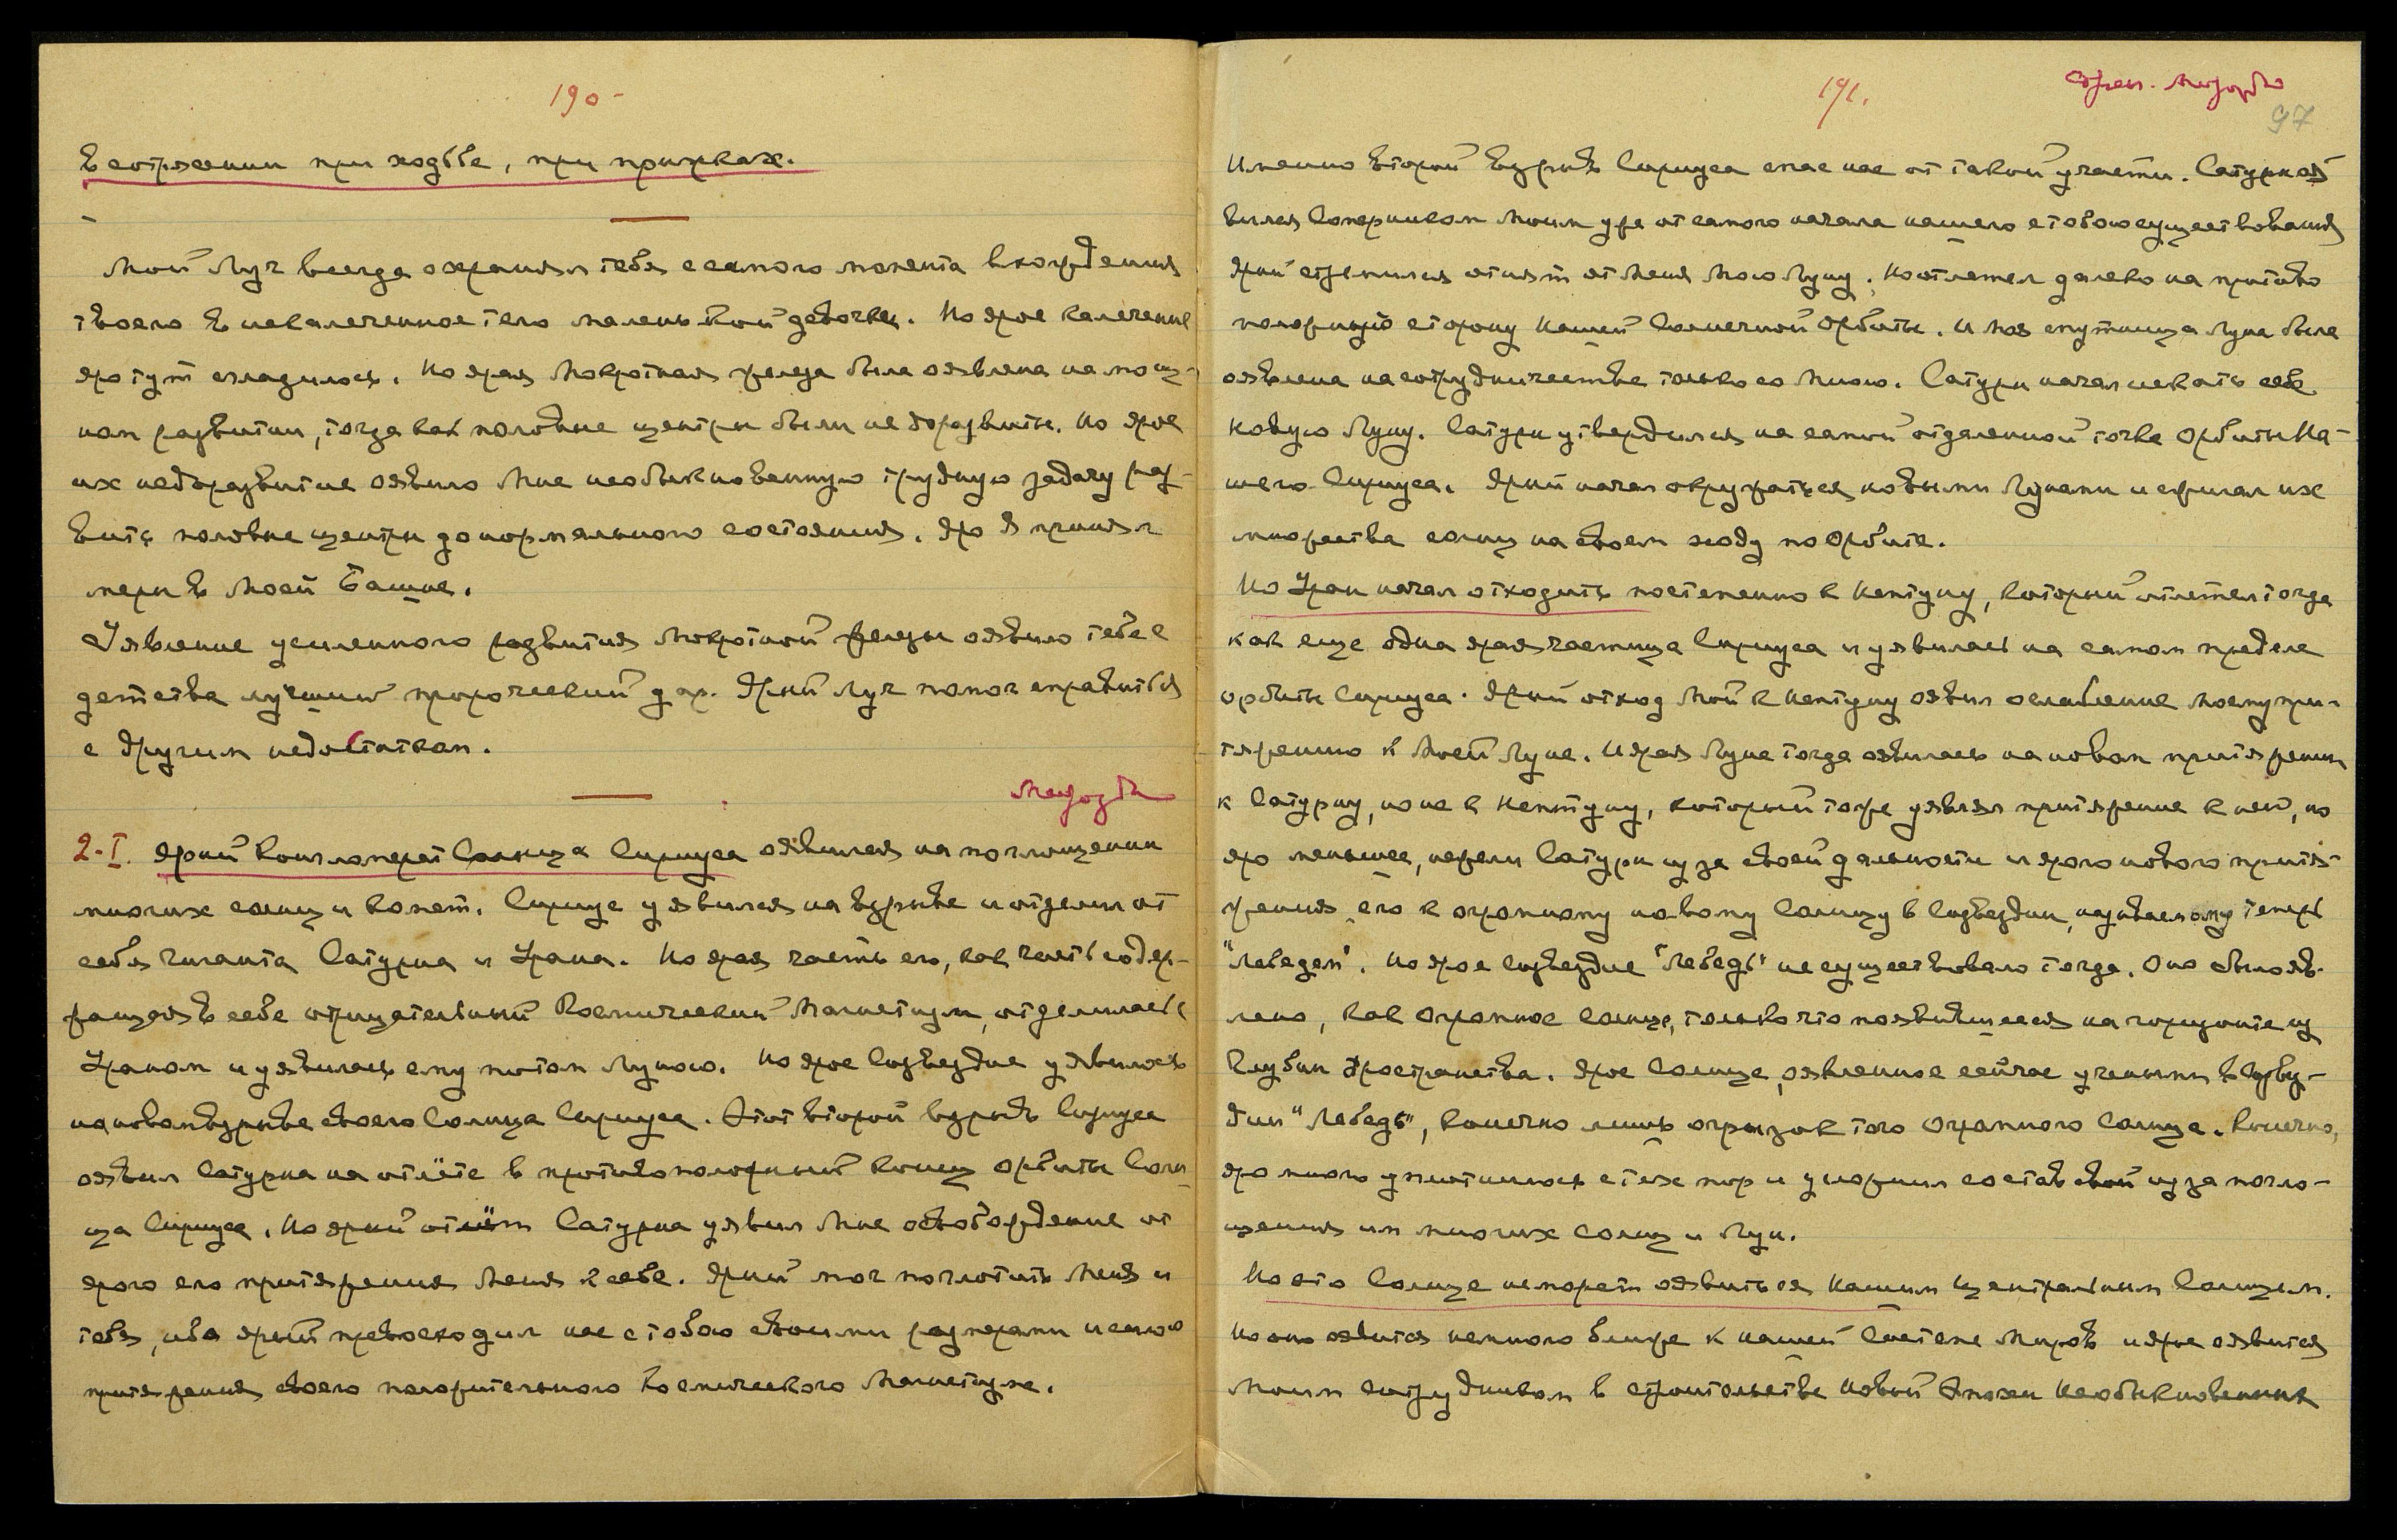 190-
в сотрясении при ходьбе, при прыжках.
Мой Луч всегда охранял тебя с самого момента вхождения
твоего в искалеченное тело маленькой девочки. Но ярое калечение
яро тут сгладилось. Но ярая Мокротная железа была оявлена на мощ-
ном развитии, тогда как половые центры были не доразвиты. Но ярое
их недоразвитие оявило Мне необыкновенную трудную задачу раз-
вить половые центры до нормального состояния. Яро Я принял
меры в Моей Башне.
Уявление усиленного развития Мокротной железы оявило тебе с
детства лучший пророческий дар. Ярый Луч помог справиться
с другим недостатком.
Мегозды
2-I. Ярый конгломерат Солнца Сириуса оявился на поглощении
многих солнц и комет. Сириус уявился на взрыве и отделил от
себя гиганта Сатурна и Урана. Но ярая часть его, как часть содер-
жащая в себе отрицательный Космический Магнетизм, отделилась с
Ураном и уявилась ему потом Луною. Но ярое Созвездие уявилось
на новом взрыве своего Солнца Сириуса. Этот второй взрыв Сириуса
оявил Сатурна на отлёте в противоположный конец орбиты Солн-
ца Сириуса. Но ярый отлёт Сатурна уявил Мне освобождение от
ярого его притяжения Меня к себе. Ярый мог поглотить Меня и
тебя, ибо ярый превосходил нас с тобою своими размерами и силою
притяжения своего положительного Космического Магнетизма.
191.
97
Именно второй взрыв Сириуса спас нас от такой участи. Сатурн оя-
вился Соперником Моим уже от самого начала нашего с тобою существования
Ярый стремился отнять от Меня Мою Луну. Но отлетел далеко на противо
положную сторону Нашей Солнечной Орбиты. И Моя спутница Луна была
оявлена на сотрудничестве только со Мною. Сатурн начал искать себе
Новую Луну. Сатурн утвердился на самой отдаленной точке Орбиты На-
шего Сириуса. Ярый начал окружаться новыми Лунами и сжигал их
множества солнц на своем ходу по Орбите.
Но Уран начал отходить постепенно к Нептуну, который отлетел тогда
как еще одна ярая частица Сириуса и уявилась на самом пределе
орбиты Сириуса. Ярый отход Мой к Нептуну оявил ослабление Моему при-
тяжению к Моей Луне. И ярая Луна тогда оявилась на новом притяжении
к Сатурну, но не к Нептуну, который тоже уявлял притяжение к ней, но
яро меньшее, нежели Сатурн из за своей дальности и ярого нового притя-
жения его к огромному новому Солнцу в Созвездии, называемому теперь
"Лебедем". Но ярое созвездие "Лебедь" не существовало тогда. Оно было яв-
лено, как Огромное Солнце, только что появившееся на горизонте из
Глубин Пространства. Ярое Солнце, оявленное сейчас учеными в Созвез-
дии "Лебедь", конечно лишь огрызок того Огромного Солнца. Конечно,
яро много уплотнилось с тех пор и умножил состав свой из за погло-
щения им многих Солнц и Лун.
Но это Солнце не может оявиться Нашим Центральным Солнцем.
Но оно оявится немного ближе к нашей Системе Миров и ярое оявится
Моим сотрудником в строительстве Новой Эпохи Необыкновенных